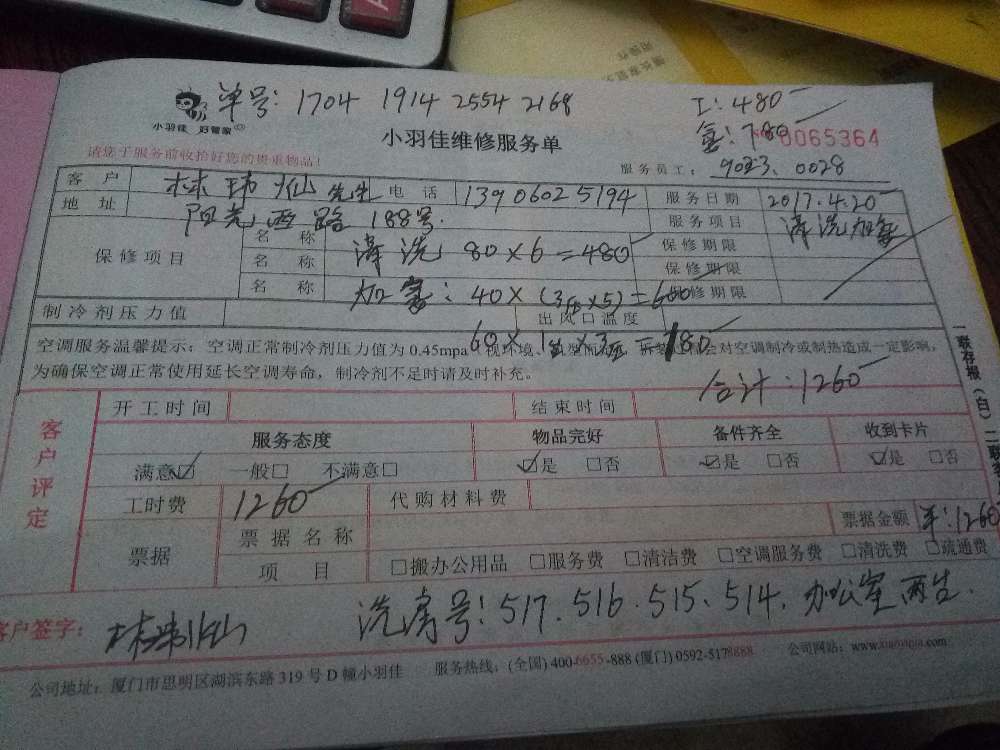 单号: 1704 1914 2554 2168
工: 480
小羽佳 好管家
小羽佳维修服务单
氢: 780
0065364
请您于服务前收拾好您的贵重物品!
服务员工: 9023、0028
客户 林玮灿 先生 电话 13906025194 服务日期 2017.4.20
地址 阳光西路 188号 服务项目 清洗加氢
保修项目 名称 清洗 80×6=480 保修期限
名称 保修期限
名称 加氢: 40×(3×5)=600 保修期限
制冷剂压力值 出风口温度
60× =180
空调服务温馨提示: 空调正常制冷剂压力值为0.45mpa 会对空调制冷或制热造成一定影响,
为确保空调正常使用延长空调寿命,制冷剂不足时请及时补充。
合计: 1260
一联存根(白)二联
客户评定
开工时间 结束时间
服务态度 物品完好 备件齐全 收到卡片
满意☑ 一般□ 不满意□ ☑是 □否 ☑是 □否 ☑是 □否
工时费 1260 代购材料费
票据 票据名称 票据金额 ¥:1260
项目 □搬办公用品 □服务费 □清洁费 □空调服务费 □清洗费 □疏通费
客户签字: 洗房号: 517.516.515、514、办公室两台.
公司地址: 厦门市思明区湖滨东路319号D幢小羽佳 服务热线: (全国) 400-6655-888 (厦门) 0592-5178888 公司网站: www.xiaoyujia.com